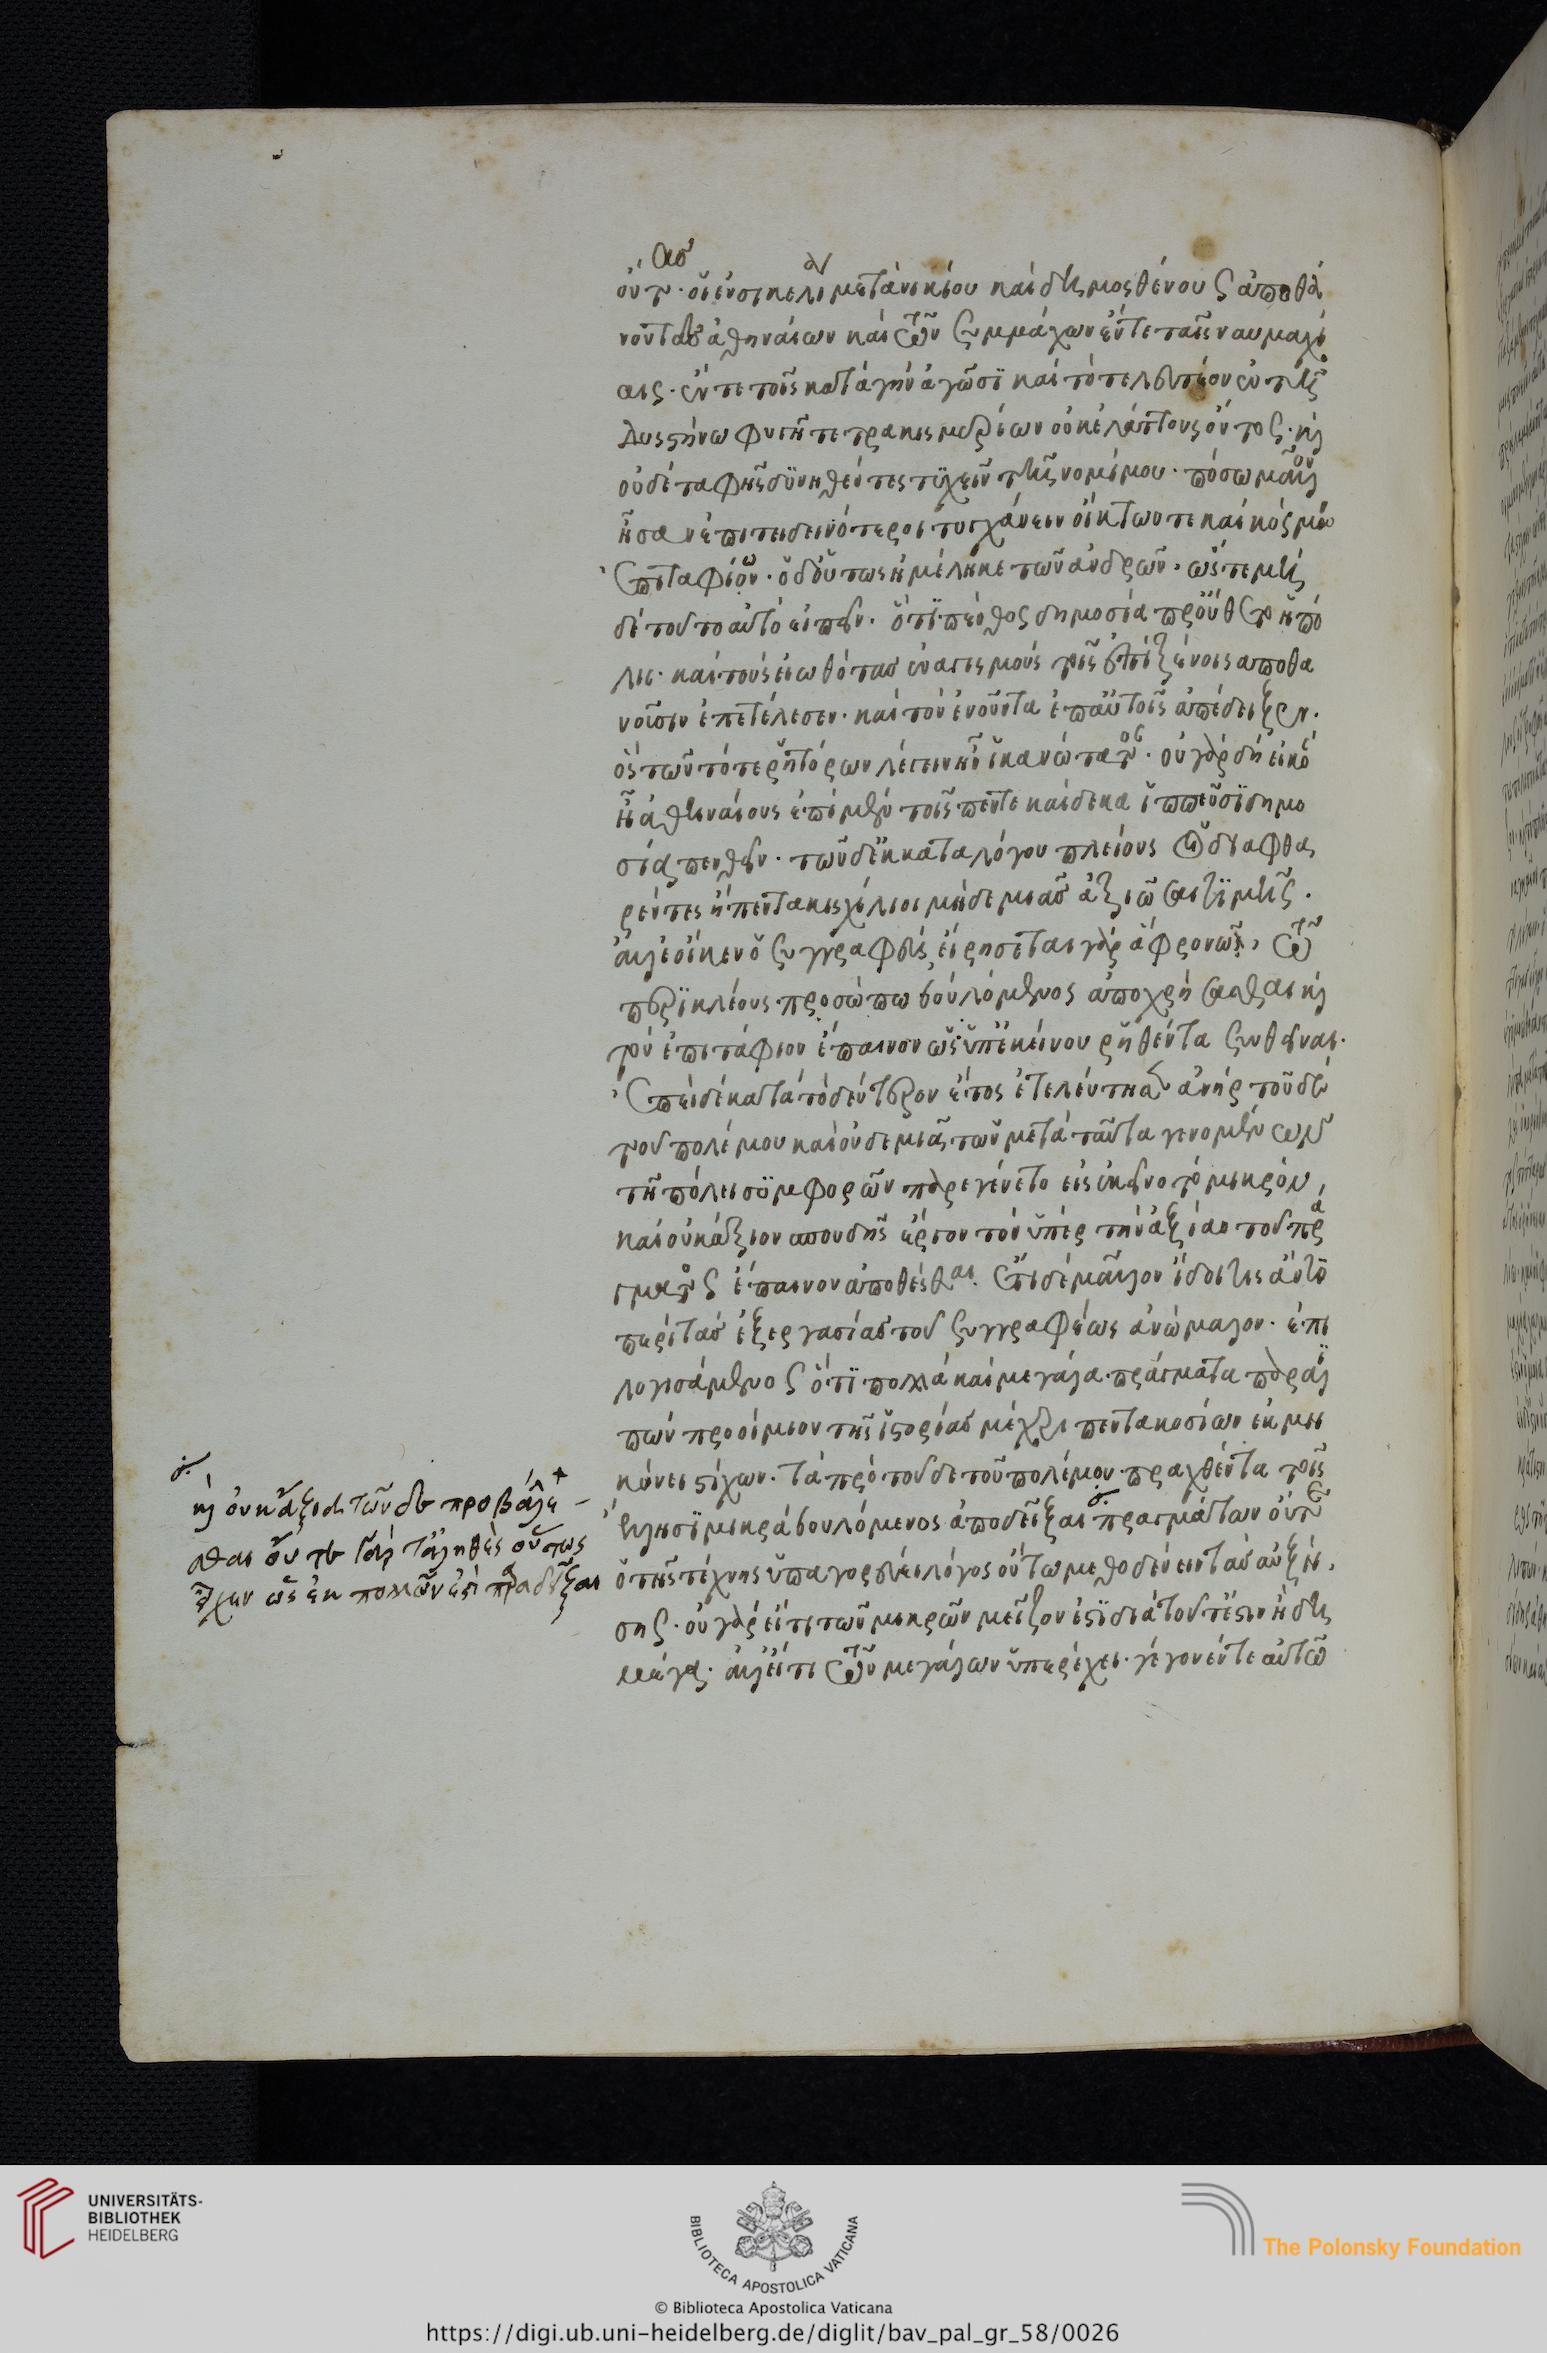 ὄντας· οἱ ἐν σικελίαν μετὰ νικίου καὶ δημοσθένους ἀποθα
νόντας ἀθηναίων καὶ τῶν συμμάχων ἔν τε ταῖς ναυμαχί
αις· ἔν τε τοῖς κατὰ γῆν ἀγῶσϊ καὶ τὸ τελευταῖον ἐν τῆς
δυστήνω φυγῆ τετρακισμυρίων οὐκ ἐλάττους ὄντος· καὶ
οὐδὲ ταφῆς δϋνηθέντες τϋχεῖν τῆς νομίμου· πόσω μᾶλλον
ἦσαν ἐπιτηδεινότεροι τυγχάνειν οἴκτων τε καὶ κόσμων
ἐπιταφίων· ὃ δ' οὕτως ἠμέληκε τῶν ἀνδρῶν· ὥστε μη
δὲ τοῦτο αὐτὸ εἰπεῖν· ὅτϊ πένθος δημοσία προὔθετο ἡ πό
λις· καὶ τοὺς εἰωθότας ἐναγισμοὺς τοῖς ἐπὶ ξένοις αποθα
νοῦσιν ἐπετέλεσεν· καὶ τὸν ἐνοῦντα ἐπ' αὐτοῖς ἀπέδειξεν·
ὃς τῶν τότε ῥητόρων λέγειν ἦν ἱκανώτατος· οὐ γὰρ δὴ εἰκὸς
ἦ ἀθηναίους ἐπὶ μὲν τοῖς πέντε καὶ δεκα ἵππεῦσϊ δημο
σίας πενθεῖν· τῶν δ' ἐκ καταλόγου πλείους οἱ διαφθα
ρέντες ἢ πεντακισχίλιοι μηδεμιᾶς ἀξιῶσαι τϊμῆς·
ἀλλ' ἔοικεν ὁ συγγραφεὺς, εἰρησεται γὰρ ἃ φρονῶ, τῶ
περϊκλέους προσώπω βουλόμενος ἀποχρήσασθαι καὶ
τὸν ἐπιτάφιον ἔπαινον ὡς ὑπ' ἐκείνου ῥηθέντα συνθεῖναι·
ἐπειδὲ κατὰ τὸ δεύτερον ἔτος ἐτελεύτησεν ἁνὴρ τοῦδε
τοῦ πολέμου καὶ οὐδεμιᾶς τῶν μετὰ ταῦτα γενομένων
τῆ πόλει σϋμφορῶν παρεγένετο εἰς ἐκεῖνο τὸ μικρὸν,
καὶ οὐκ ἄξιον σπουδῆς ἔργον τὸν ὑπὲρ τὴν ἀξίαν τοῦ πρά
γματος ἔπαινον ἀποθέσθαι. ἔτι δὲ μᾶλλον ἴδοι τις ἂν τὸ
περὶ τὰς ἐξεργασίας τοῦ συγγραφέως ἀνώμαλον· ἐπι
λογισάμενος ὅτϊ πολλὰ καὶ μεγάλα πράγματα παραλϊ
πὼν προοίμιον τῆς ἱστορίας μέχρι πεντακοσίων ἐκ μη
κύνει στίχων· τὰ πρὸ τοῦδε τοῦ πολέμου πραχθέντα τοῖς
ἕλλησϊ μικρὰ βουλόμενος ἀποδεῖξαι πραγμάτων οὔτε
ὁ τῆς τέχνης ὑπαγορεύει λόγος οὕτω μεθοδεύειν τὰς αὐξή
σης· οὐ γὰρ εἴ τι τῶν μικρῶν μεῖζον ἐστϊ διὰ τοῦτ' ἔστιν ἤδη
μέγα· ἀλλ' εἴ τι τῶν μεγάλων ὑπερέχει· γέγονέν τε αὐτῶ
καὶ οὐκ ἄξια τῶνδε προβάλε-
σθαι οὔτε γὰρ τἀληθὲς οὕτως
εἶχεν ὡς ἐκ πολλῶν ἐστὶ παραδεῖξαι
UNIVERSITÄTS-
BIBLIOTHEK
HEIDELBERG
BIBLIOTECA APOSTOLICA VATICANA
The Polonsky Foundation
© Biblioteca Apostolica Vaticana
https://digi.ub.uni-heidelberg.de/diglit/bav_pal_gr_58/0026